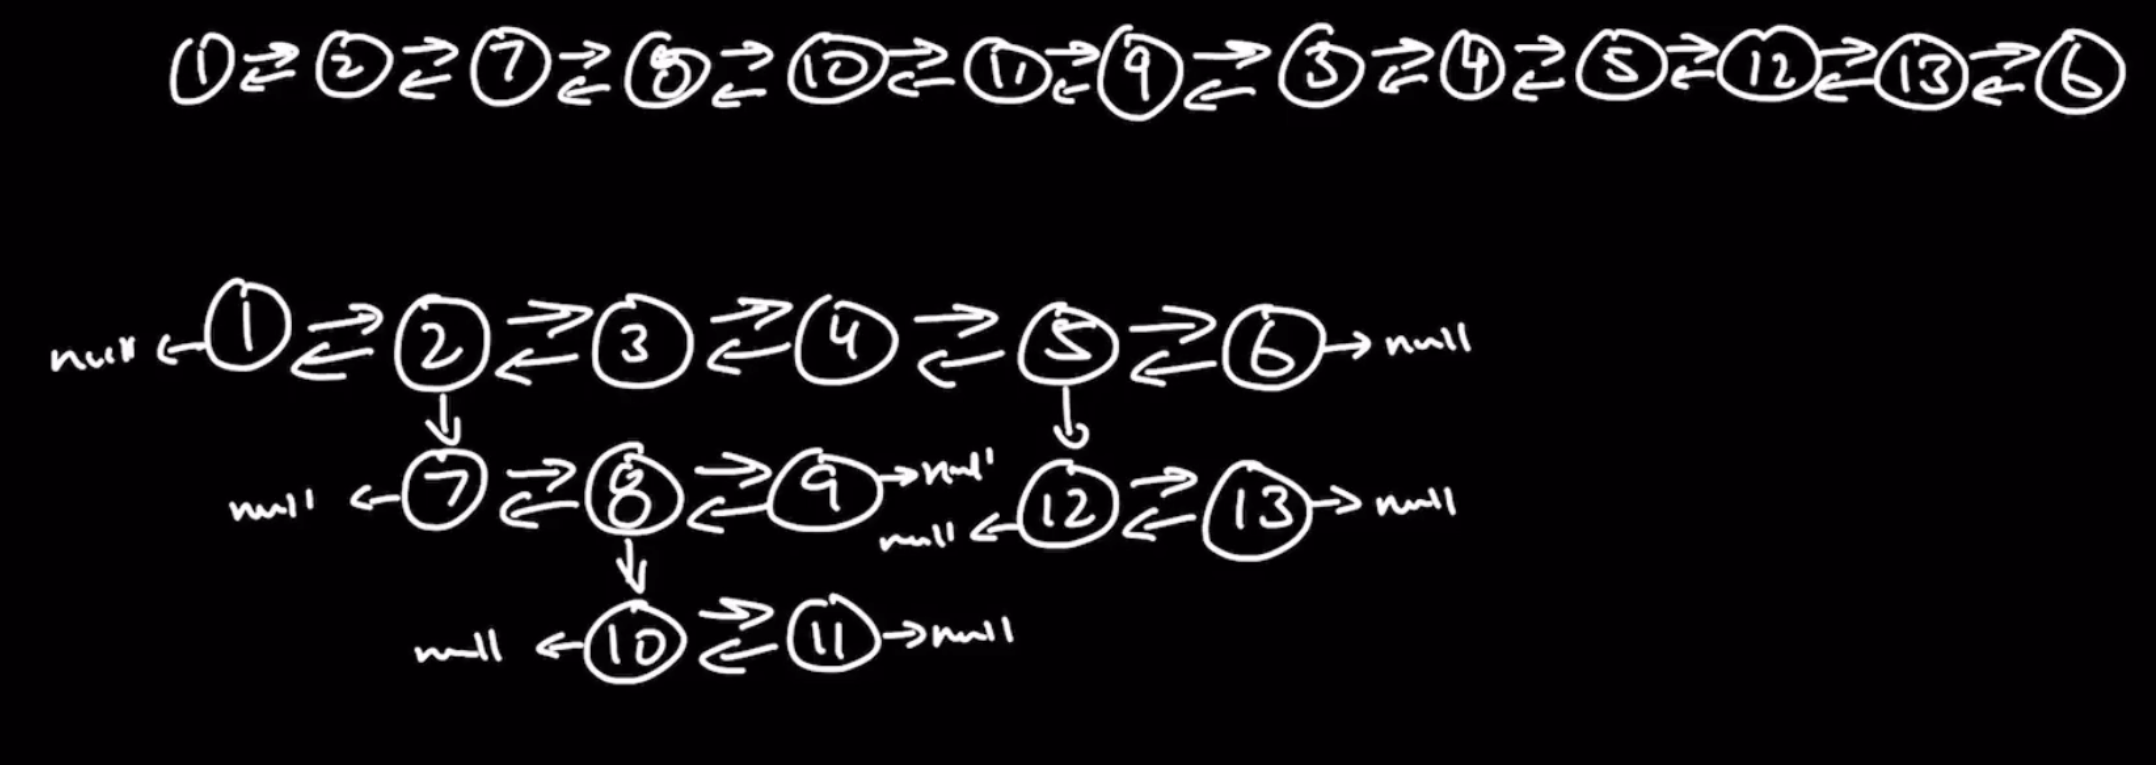 1 2 7 8 10 11 9 3 4 5 12 13 6
null 1 2 3 4 5 6 null
null 7 8 9 null null 12 13 null
null 10 11 null